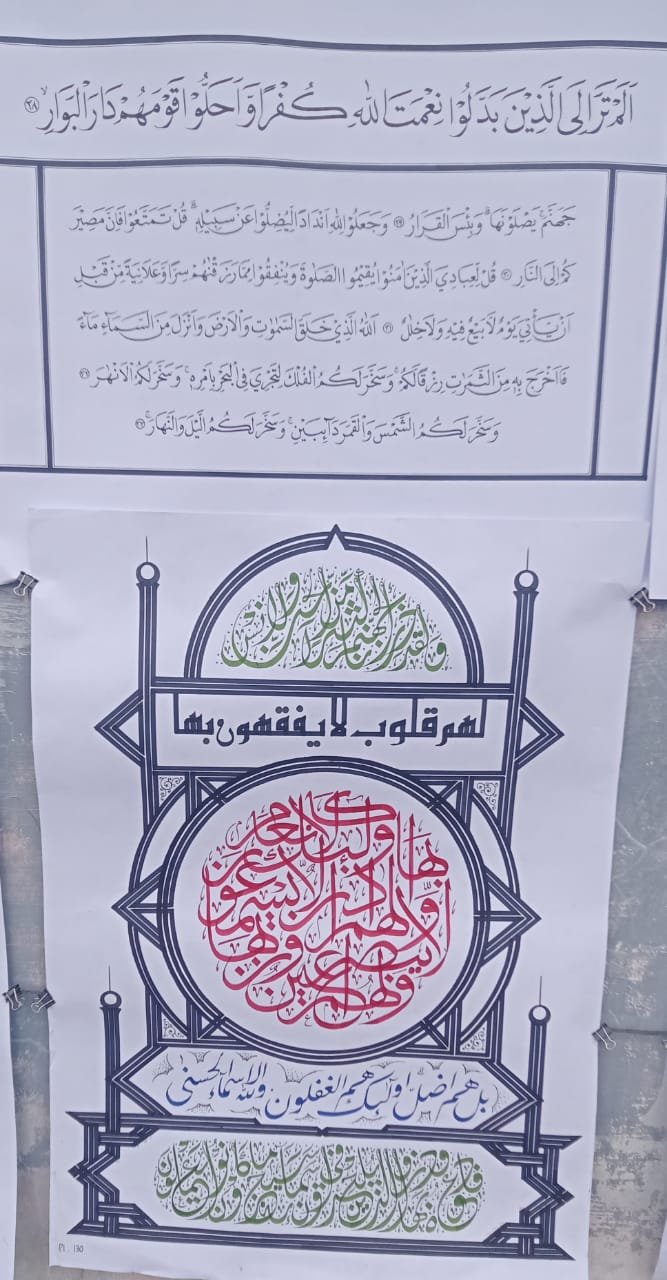 اَلَمْ تَرَ اِلَى الَّذِيْنَ بَدَّلُوْا نِعْمَتَ اللّٰهِ كُفْرًا وَّاَحَلُّوْا قَوْمَهُمْ دَارَ الْبَوَارِۙ ٢٨
جَهَنَّمَ ۚ يَصْلَوْنَهَا ۗ وَبِئْسَ الْقَرَارُ ٢٩ وَجَعَلُوْا لِلّٰهِ اَنْدَادًا لِّيُضِلُّوْا عَنْ سَبِيْلِهٖ ۗ قُلْ تَمَتَّعُوْا فَاِنَّ مَصِيْرَ
كُمْ اِلَى النَّارِ ٣٠ قُلْ لِّعِبَادِيَ الَّذِيْنَ اٰمَنُوْا يُقِيْمُوا الصَّلٰوةَ وَيُنْفِقُوْا مِمَّا رَزَقْنٰهُمْ سِرًّا وَّعَلَانِيَةً مِّنْ قَبْلِ
اَنْ يَّأْتِيَ يَوْمٌ لَّا بَيْعٌ فِيْهِ وَلَا خِلٰلٌ ٣١ اَللّٰهُ الَّذِيْ خَلَقَ السَّمٰوٰتِ وَالْاَرْضَ وَاَنْزَلَ مِنَ السَّمَاۤءِ مَاۤءً
فَاَخْرَجَ بِهٖ مِنَ الثَّمَرٰتِ رِزْقًا لَّكُمْ ۚ وَسَخَّرَ لَكُمُ الْفُلْكَ لِتَجْرِيَ فِى الْبَحْرِ بِاَمْرِهٖ ۚ وَسَخَّرَ لَكُمُ الْاَنْهٰرَ ٣٢
وَسَخَّرَ لَكُمُ الشَّمْسَ وَالْقَمَرَ دَاۤىِٕبَيْنِ ۚ وَسَخَّرَ لَكُمُ الَّيْلَ وَالنَّهَارَ ۚ ٣٣
ولقد ذرأنا لجهنم كثيرا من الجن والانس
لهم قلوب لا يفقهون بها
ولهم اعين لا يبصرون بها ولهم اذان لا يسمعون بها اولئك كالانعام
بل هم اضل اولئك هم الغفلون ولله الاسماء الحسنى
فادعوه بها وذروا الذين يلحدون في اسمائه سيجزون ما كانوا يعملون
P1. 130